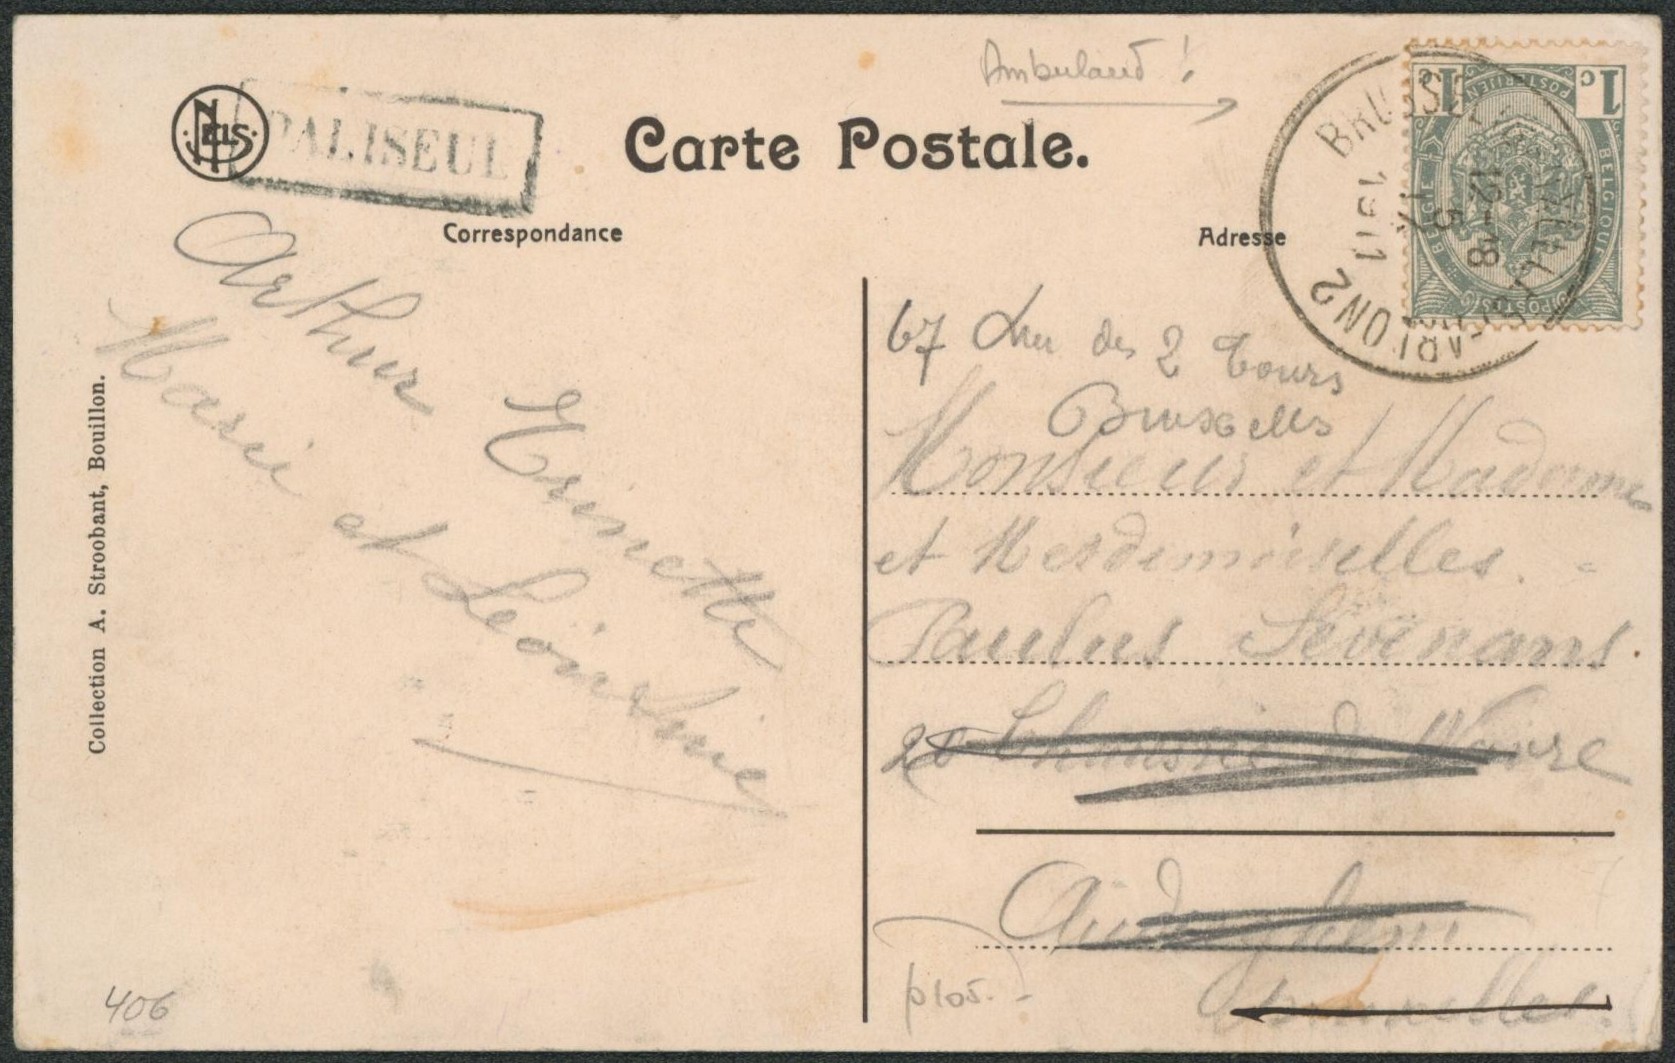 Ambulant !
NELS
PALISEUL
Carte Postale.
Correspondance
Adresse
1c 1c
POSTERIJEN
BELGIE BELGIQUE
POSTES
BRUSSEL
12-18
5
IX
1911
ARLON 2
Arthur Trinette
Marie et Léontine
Collection A. Stroobant, Bouillon.
67 Rue des 2 Tours
Bruxelles
Monsieur et Madame
et Mesdemoiselles.
Paulus Sévenans.
20 Chaussée de Wavre
Auderghem
Bruxelles.
p105.-
406